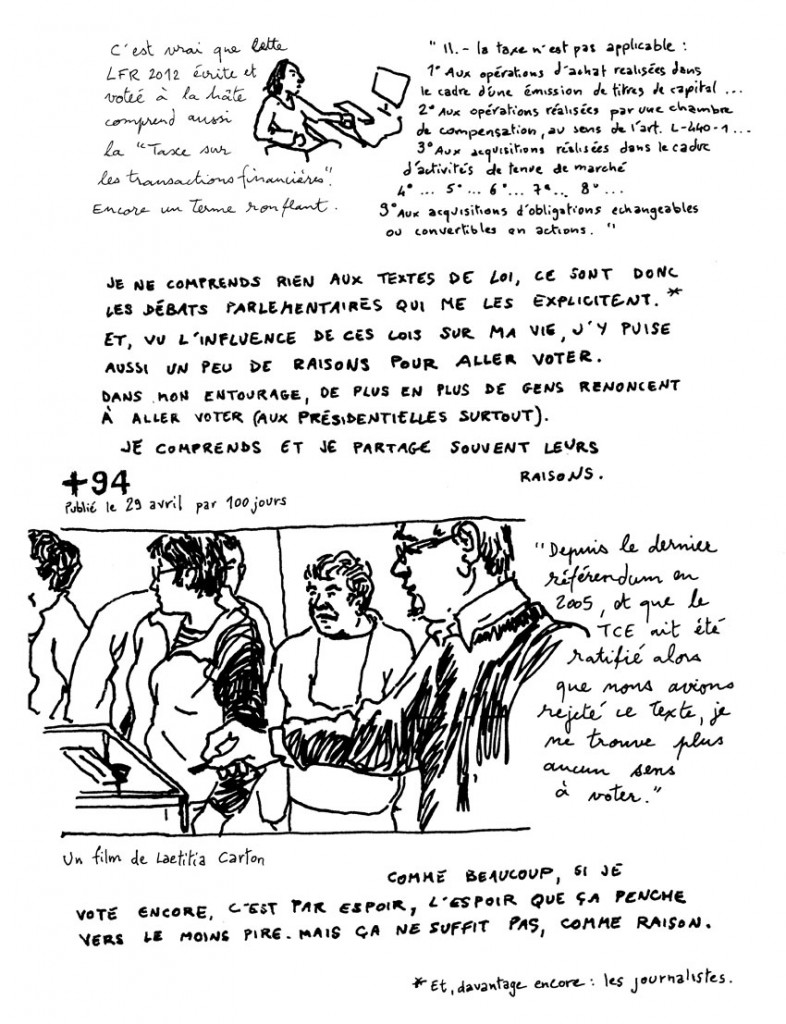 C'est vrai que cette
LFR 2012 écrite et
votée à la hâte
comprend aussi
la "Taxe sur
les transactions financières".
Encore un terme ronflant.
" II. - la taxe n'est pas applicable :
1° Aux opérations d'achat réalisées dans
le cadre d'une émission de titres de capital ...
2° Aux opérations réalisées par une chambre
de compensation, au sens de l'art. L-440-1...
3° Aux acquisitions réalisées dans le cadre
d'activités de tenue de marché
4° ... 5° ... 6° ... 7° ... 8° ...
9° Aux acquisitions d'obligations echangeables
ou convertibles en actions. "
JE NE COMPRENDS RIEN AUX TEXTES DE LOI, CE SONT DONC
LES DÉBATS PARLEMENTAIRES QUI ME LES EXPLICITENT. *
ET, VU L'INFLUENCE DE CES LOIS SUR MA VIE, J'Y PUISE
AUSSI UN PEU DE RAISONS POUR ALLER VOTER.
DANS MON ENTOURAGE, DE PLUS EN PLUS DE GENS RENONCENT
À ALLER VOTER (AUX PRÉSIDENTIELLES SURTOUT).
JE COMPRENDS ET JE PARTAGE SOUVENT LEURS
RAISONS.
+94
Publié le 29 avril par 100jours
"Depuis le dernier
référendum en
2005, et que le
TCE ait été
ratifié alors
que nous avions
rejeté ce texte, je
ne trouve plus
aucun sens
à voter."
Un film de Laetitia Carton
COMME BEAUCOUP, SI JE
VOTE ENCORE, C'EST PAR ESPOIR, L'ESPOIR QUE ÇA PENCHE
VERS LE MOINS PIRE. MAIS ÇA NE SUFFIT PAS, COMME RAISON.
* Et, davantage encore : les journalistes.